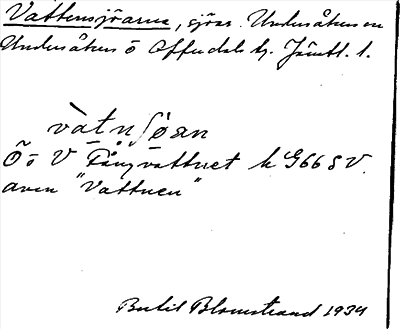 Vattensjöarna, sjöar. Undersåkers sn
Undersåkers o Offerdals tg. Jämtl. l.
vàtnʃòan
Ö o V Fångvattnet k G66 S V.
även "Vattnen"
Bertil Blomstrand 1934